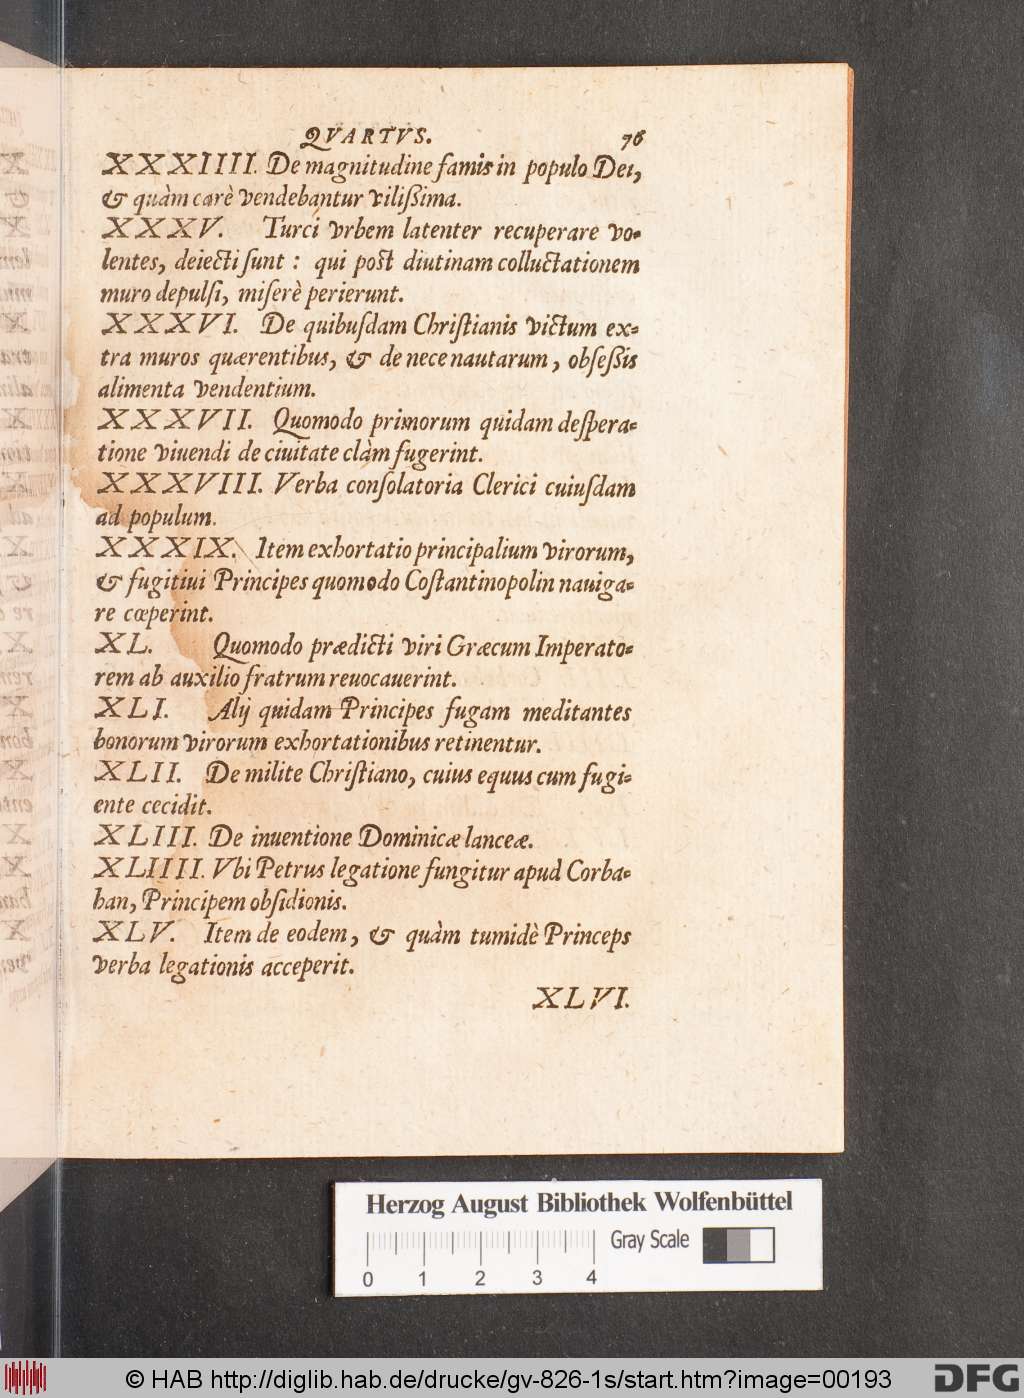 QVARTVS. 76
XXXIIII. De magnitudine famis in populo Dei,
& quàm carè vendebantur vilißima.
XXXV. Turci vrbem latenter recuperare vo-
lentes, deiecti ſunt : qui poſt diutinam colluctationem
muro depulſi, miſerè perierunt.
XXXVI. De quibuſdam Chriſtianis victum ex-
tra muros quærentibus, & de nece nautarum, obſeßis
alimenta vendentium.
XXXVII. Quomodo primorum quidam deſpera-
tione viuendi de ciuitate clàm fugerint.
XXXVIII. Verba conſolatoria Clerici cuiuſdam
ad populum.
XXXIX. Item exhortatio principalium virorum,
& fugitiui Principes quomodo Coſtantinopolin nauiga-
re cœperint.
XL. Quomodo prædicti viri Græcum Imperato-
rem ab auxilio fratrum reuocauerint.
XLI. Alij quidam Principes fugam meditantes
bonorum virorum exhortationibus retinentur.
XLII. De milite Chriſtiano, cuius equus cum fugi-
ente cecidit.
XLIII. De inuentione Dominicæ lanceæ.
XLIIII. Vbi Petrus legatione fungitur apud Corba-
han, Principem obſidionis.
XLV. Item de eodem, & quàm tumidè Princeps
verba legationis acceperit.
XLVI.
Herzog August Bibliothek Wolfenbüttel
Gray Scale
0 1 2 3 4
© HAB http://diglib.hab.de/drucke/gv-826-1s/start.htm?image=00193
DFG